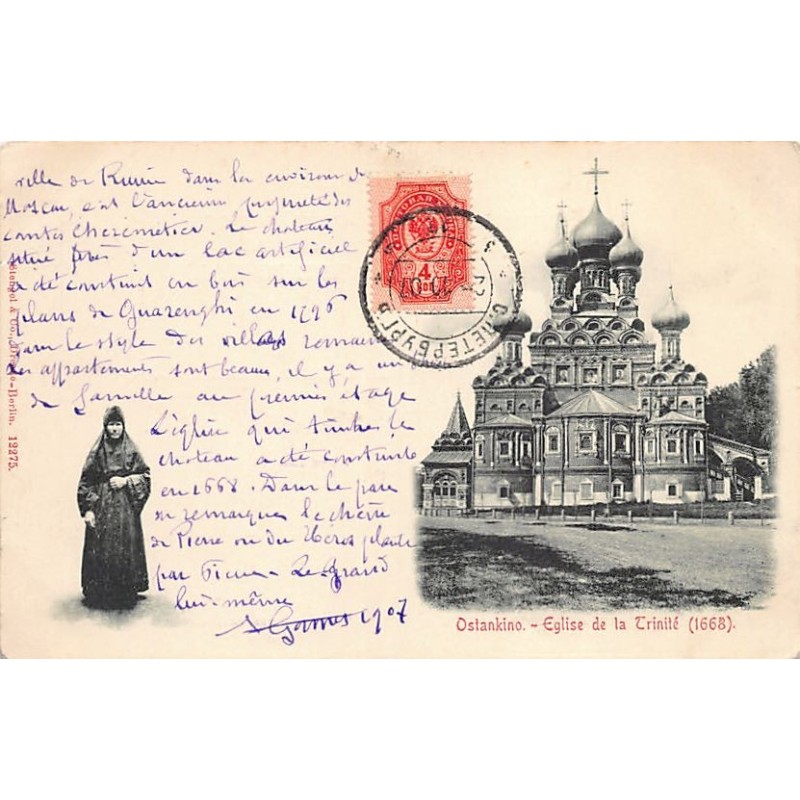 ville de Russie dans les environs de
Moscou, est l'ancienne propriété des
comtes Cheremetiev. Le chateau
situé près d'un lac artificiel
a été construit en bois sur les
plans de Quarenghi en 1796
dans le style des villas romaines
Les appartements sont beaux, il y a un
de famille au premier étage
L'église qui touche le
chateau a été construite
en 1668. Dans le parc
on remarque le chêne
de Pierre ou du Heros planté
par Pierre-Le-Grand
lui-même
1907
ПОЧТОВАЯ МАРКА
4
С.ПЕТЕРБУРГЪ
10.07
Stengel & Co., Dresde-Berlin. 12275.
Ostankino. - Eglise de la Trinité (1668).